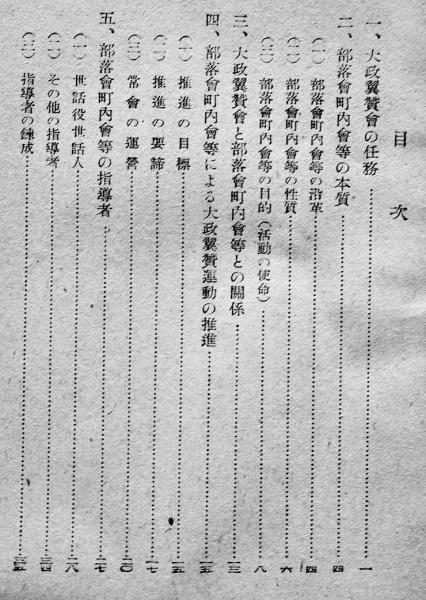 目次
一、大政翼賛會の任務……一
二、部落會町內會等の本質……四
(一) 部落會町內會等の沿革……四
(二) 部落會町內會等の性質……六
(三) 部落會町內會等の目的(活動の使命)……八
三、大政翼賛會と部落會町內會等との關係……一三
四、部落會町內會等による大政翼賛運動の推進……一五
(一) 推進の目標……一五
(二) 推進の要諦……一七
(三) 常會の運營……二〇
五、部落會町內會等の指導者……二七
(一) 世話役世話人……二八
(二) その他の指導者……三四
(三) 指導者の錬成……三五